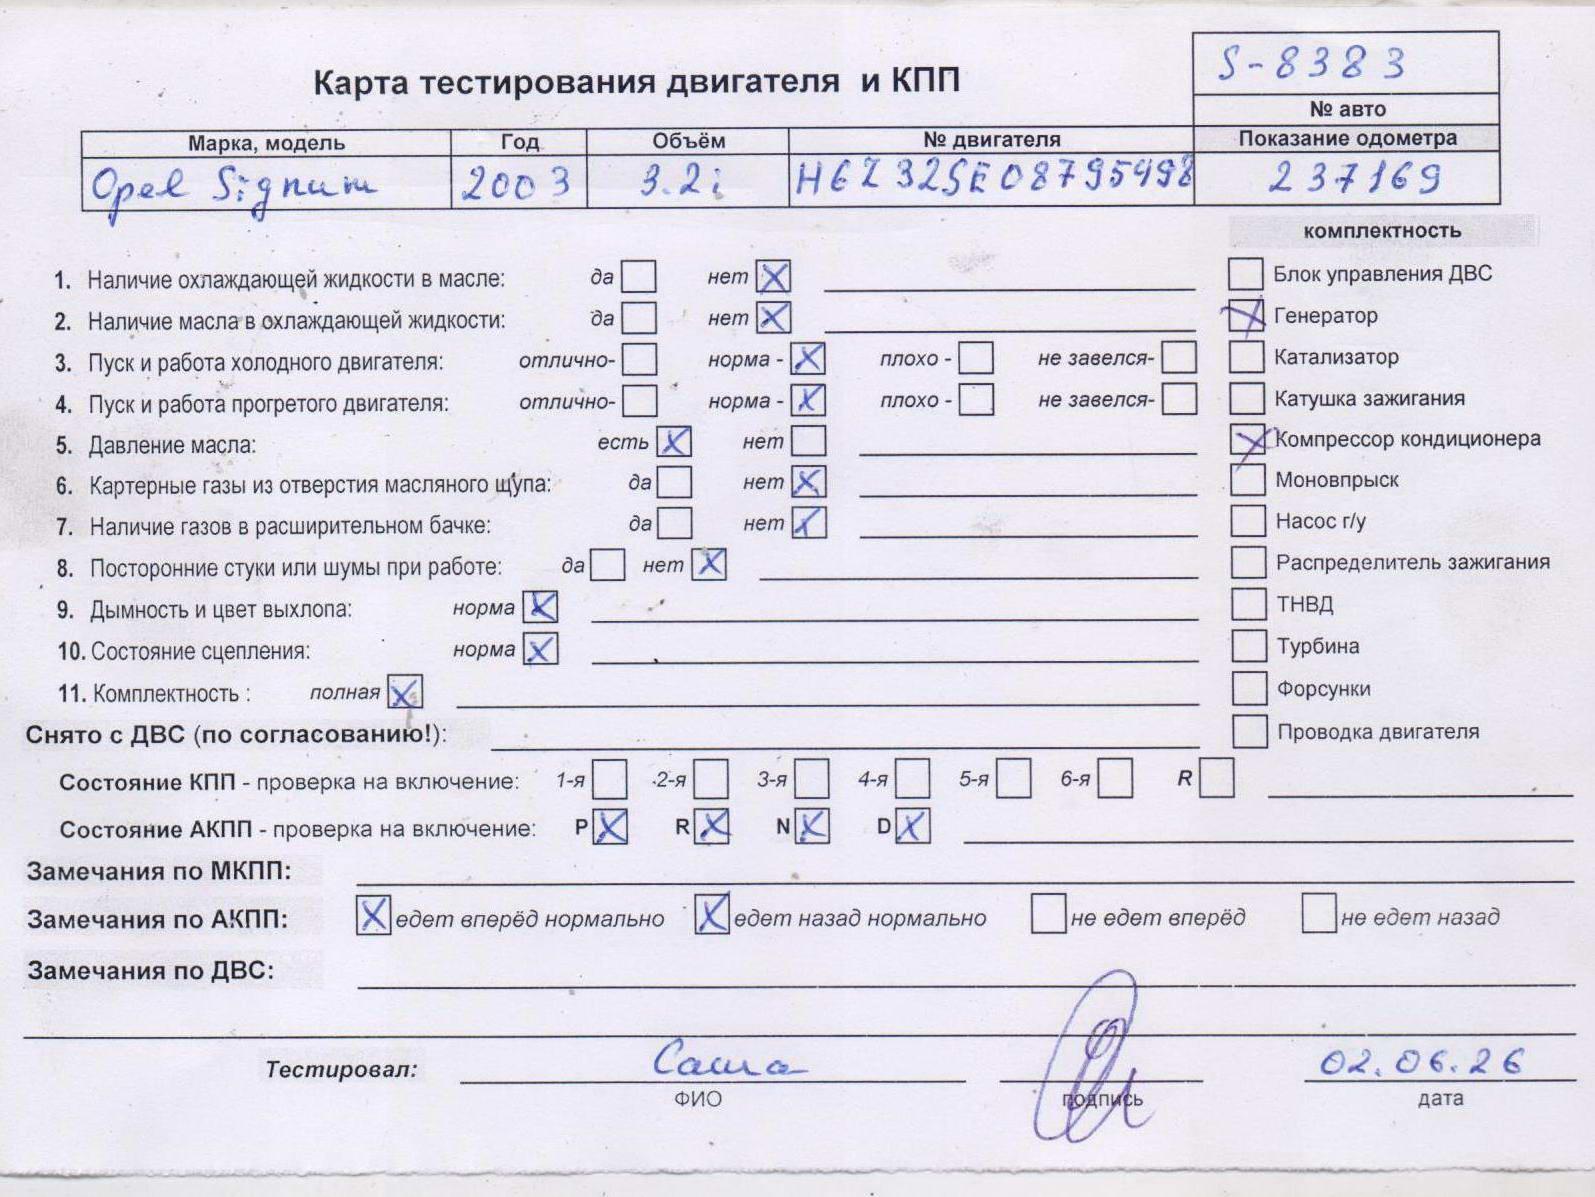 S-8383
Карта тестирования двигателя и КПП
№ авто
Марка, модель Год Объём № двигателя Показание одометра
Opel Signum 2003 3.2i H6Z32SE08795498 237169
комплектность
1. Наличие охлаждающей жидкости в масле: да нет X Блок управления ДВС
2. Наличие масла в охлаждающей жидкости: да нет X X Генератор
3. Пуск и работа холодного двигателя: отлично- норма - X плохо - не завелся- Катализатор
4. Пуск и работа прогретого двигателя: отлично- норма - X плохо - не завелся- Катушка зажигания
5. Давление масла: есть X нет X Компрессор кондиционера
6. Картерные газы из отверстия масляного щупа: да нет X Моновпрыск
7. Наличие газов в расширительном бачке: да нет X Насос г/у
8. Посторонние стуки или шумы при работе: да нет X Распределитель зажигания
9. Дымность и цвет выхлопа: норма X ТНВД
10. Состояние сцепления: норма X Турбина
11. Комплектность : полная X Форсунки
Снято с ДВС (по согласованию!): Проводка двигателя
Состояние КПП - проверка на включение: 1-я 2-я 3-я 4-я 5-я 6-я R
Состояние АКПП - проверка на включение: P X R X N X D X
Замечания по МКПП:
Замечания по АКПП: X едет вперёд нормально X едет назад нормально не едет вперёд не едет назад
Замечания по ДВС:
Тестировал: Саша 02.06.26
ФИО подпись дата